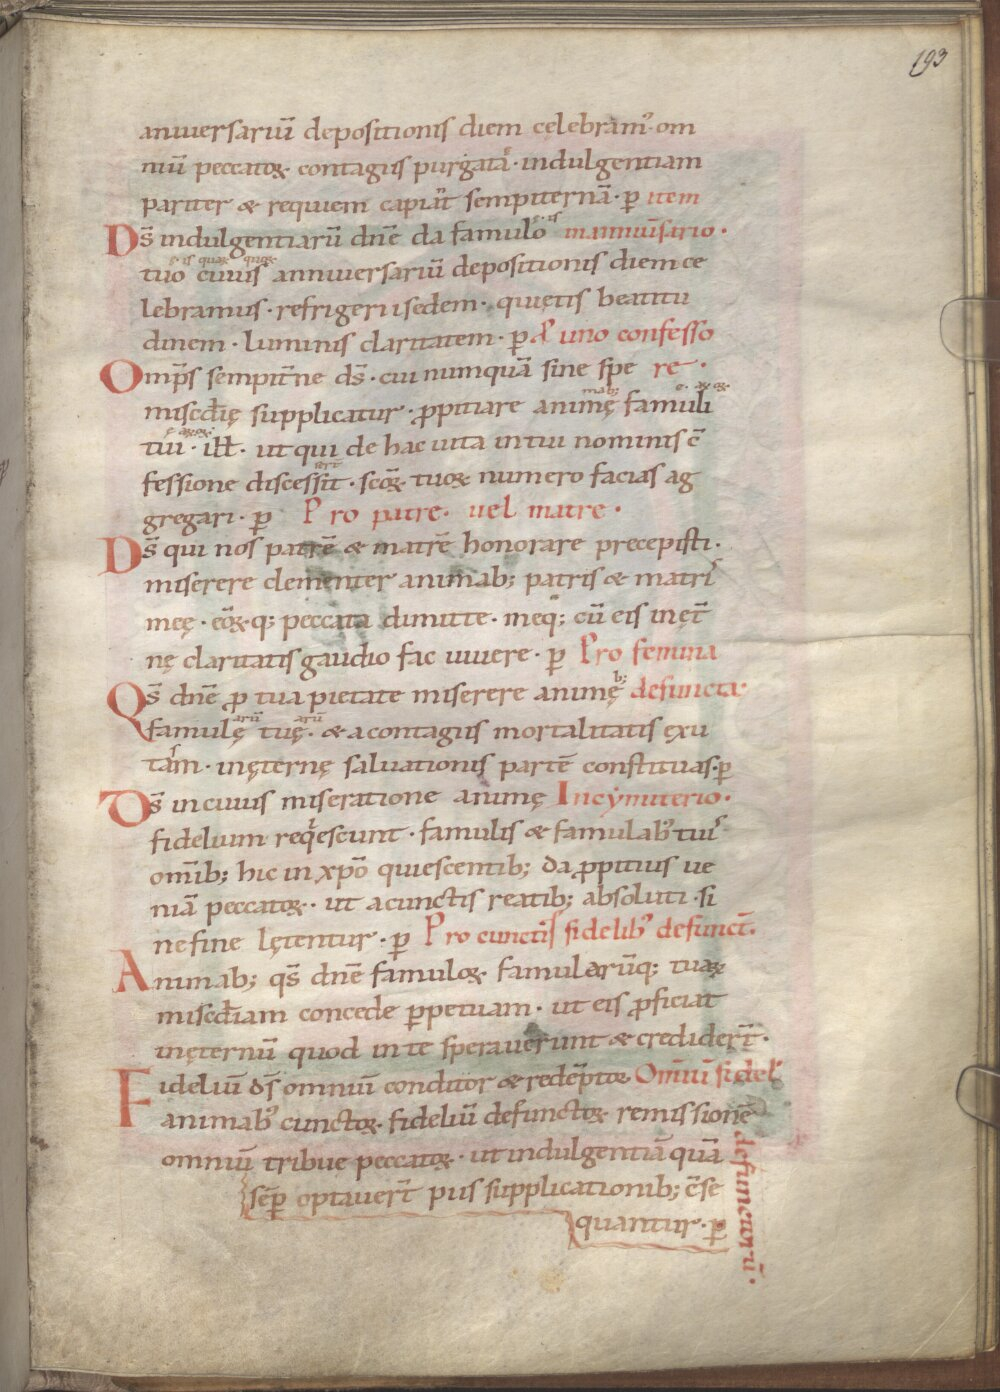 193
anniuersariū depositionis diem celebram᷒· om
niū peccatoꝝ· contagiis purgatā· indulgentiam
pariter & requiem capiat sempiternā· ꝑ item
Ds̄ indulgentiarū dn̄e da famulo in anniūsario·
tuo cuius anniuersariū depositionis diem ce
lebramus· refrigerii sedem· quietis beatitu
dinem· luminis claritatem· ꝑ uno confesso
Omp̄s sempit̄ne ds̄· cui numquā sine spe re·
misc̄dię supplicatur· ꝓpitiare animę famuli
tui· ill̄· ut qui de hac uita in tui nominis c̄
fessione discessit· sc̄oꝝ tuoꝝ numero facias ag
gregari· ꝑ Pro patre· uel matre·
Ds̄ qui nos patrē & matrē honorare precepisti·
miserere clementer animab; patris & matris
meę· eoꝝq; peccata dimitte· meq; cū eis in ęt̄
nę claritatis gaudio fac uiuere· ꝑ Pro femina
Qs̄ dn̄e ꝓ tua pietate miserere animę defuncta
famulę tuę· & a contagiis mortalitatis exu
tam· in ęternę saluationis partē constituas· ꝑ
Ds̄ in cuius miseratione animę In cymiterio·
fidelium reqͥescunt· famulis & famulab᷒ tuis
om̄ib; hic in xp̄o quiescentib; da ꝓpitius ue
niā peccatoꝝ· ut a cunctis reatib; absoluti· si
ne fine lętentur· ꝑ Pro cunctis fidelib᷒ defunct̄·
Animab; qs̄ dn̄e famuloꝝ famularūq; tuaꝝ
misc̄diam concede ꝑpetuam· ut eis ꝓficiat
in ęternū quod in te sperauerunt & credidert̄·
Fideliū ds̄ omniū conditor & redēptor Om̄iū fidel
animab᷒ cunctoꝝ fideliū defunctoꝝ remissionē
defunctorū·
omniū tribue peccatoꝝ· ut indulgentiā quā
sēꝑ optauert̄ piis supplicationib; c̄se
quantur· ꝑ